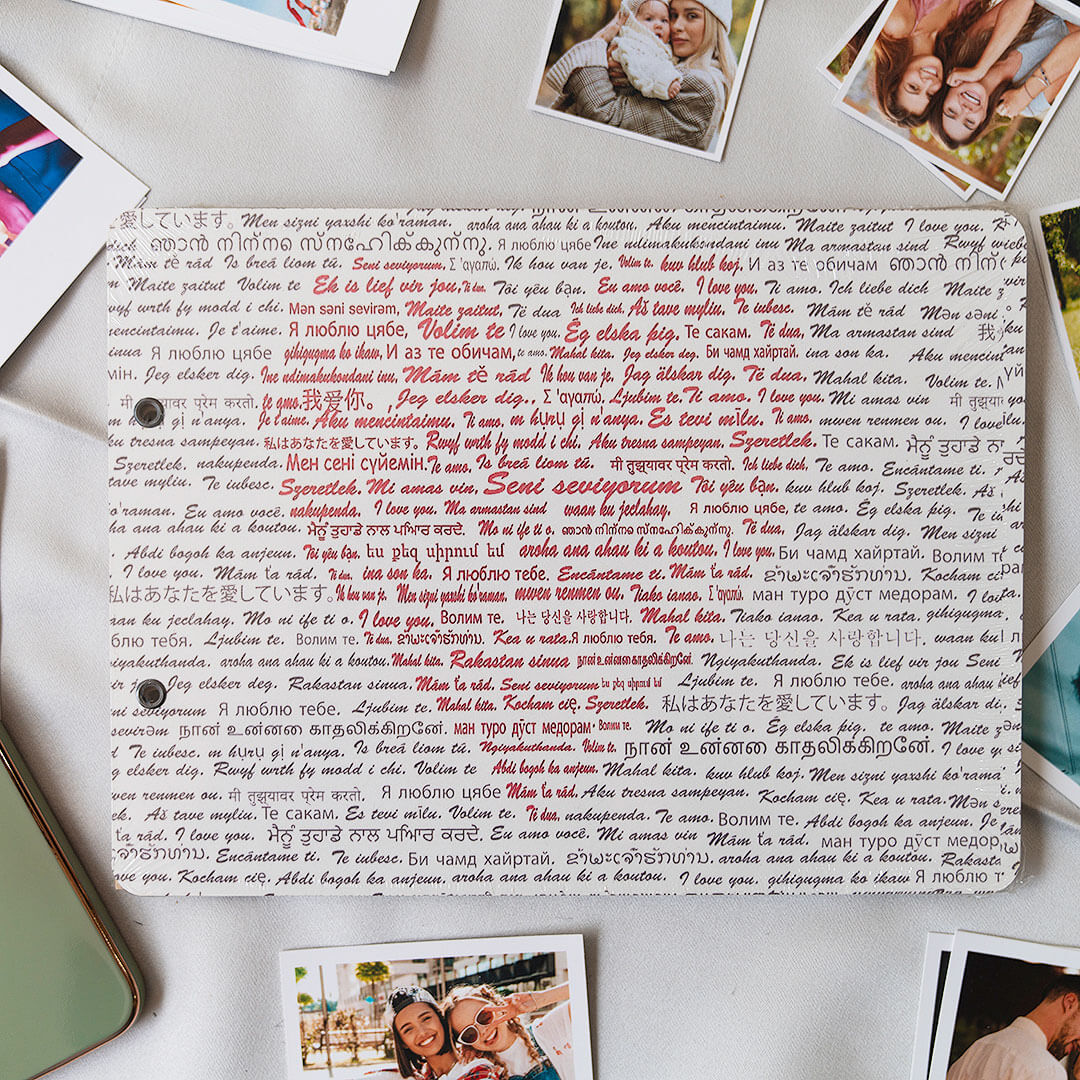 愛しています。 Men sizni yaxshi ko'raman. aroha ana ahau ki a koutou. Aku mencintaimu. Maite zaitut I love you.
ഞാൻ നിന്നെ സ്നേഹിക്കുന്നു. Я люблю цябе Ine ndimakukondani inu Ma armastan sind Rwyf
Mām tě rád Is breá liom tú. Seni seviyorum. Σ 'αγαπώ. Ik hou van je. Volim te. kuv hlub koj. И аз те обичам ഞാൻ
Maite zaitut Volim te Ek is lief vir jou. Te dua. Tôi yêu bạn. Eu amo você. I love you. Ti amo. Ich liebe dich Maite
wrth fy modd i chi. Mən səni sevirəm, Maite zaitut, Të dua Ich liebe dich, Aš tave myliu, Te iubesc. Mām tě rád Mən səni
encintaimu. Je t'aime. Я люблю цябе, Volim te I love you. Ég elska þig. Те сакам. Të dua, Ma armastan sind
Я люблю цябе gihigugma ko ikaw, И аз те обичам, te amo. Mahal kita. Jeg elsker deg. Би чамд хайртай. ina son ka. Aku
Jeg elsker dig. Ine ndimakukondani inu, Mām tě rád Ik hou van je. Jag älskar dig. Të dua, Mahal kita. Volim te.
मी तुझ्यावर प्रेम करतो. te amo. 我爱你。, Jeg elsker dig., Σ 'αγαπώ. Ljubim te. Ti amo. I love you. Mi amas vin
n'anya. Je t'aime. Aku mencintaimu. Ti amo. m hụrụ gị n'anya. Es tevi mīlu. Ti amo. mwen renmen ou. I love
ku tresna sampeyan. 私はあなたを愛しています。 Rwyf wrth fy modd i chi. Aku tresna sampeyan. Szeretlek. Те сакам. ਮੈਨੂੰ ਤੁਹਾਡੇ
Szeretlek. nakupenda. Мен сені сүйемін. Te amo. Is breá liom tú. मी तुझ्यावर प्रेम करतो. Ich liebe dich, Te amo. Encántame ti.
tave myliu. Te iubesc. Szeretlek. Mi amas vin, Seni seviyorum Tôi yêu bạn. kuv hlub koj. Szeretlek.
Eu amo você. nakupenda. I love you. Ma armastan sind waan ku jeclahay. Я люблю цябе, te amo. Ég elska þig.
ana ahau ki a koutou. ਮੈਨੂੰ ਤੁਹਾਡੇ ਨਾਲ ਪਿਆਰ ਕਰਦੇ. Mo ni ife ti o. ഞാൻ നിന്നെ സ്നേഹിക്കുന്നു. Të dua, Jag älskar dig. Men sizni
Abdi bogoh ka anjeun. Tôi yêu bạn. ես քեզ սիրում եմ aroha ana ahau ki a koutou. I love you. Би чамд хайртай. Волим
I love you. Mām ťa rád. Te dua, ina son ka. Я люблю тебе. Encántame ti. Mām ťa rád. ຂ້າພະເຈົ້າຮັກທ່ານ. Kocham
私はあなたを愛しています。 Ik hou van je. Men sizni yaxshi ko'raman. mwen renmen ou. Tiako ianao. Σ 'αγαπώ. ман туро дӯст медорам. I
waan ku jeclahay. Mo ni ife ti o. I love you. Волим те. 나는 당신을 사랑합니다. Mahal kita. Tiako ianao. Kea u rata. gihigugma
Ljubim te. Волим те. Ti dua, ຂ້າພະເຈົ້າຮັກທ່ານ. Kea u rata. Я люблю тебя. Te amo. 나는 당신을 사랑합니다. waan ku
aroha ana ahau ki a koutou. Mahal kita. Rakastan sinua நான் உன்னை காதலிக்கிறேன். Ngiyakuthanda. Ek is lief vir jou Seni
Jeg elsker deg. Rakastan sinua, Mām ťa rád. Seni seviyorum ես քեզ սիրում եմ Ljubim te. Я люблю тебя. aroha ana ahau
seviyorum Я люблю тебе. Ljubim te. Mahal kita. Kocham cię. Szeretlek. 私はあなたを愛しています。 Jag älskar
sevirəm நான் உன்னை காதலிக்கிறேன். ман туро дӯст медорам. Волим те. Mo ni ife ti o. Ég elska þig. te amo. Maite
Te iubesc. m hụrụ gị n'anya. Is breá liom tú. Ngiyakuthanda. Volim te. நான் உன்னை காதலிக்கிறேன். I love
elsker dig. Rwyf wrth fy modd i chi. Volim te Abdi bogoh ka anjeun. Mahal kita. kuv hlub koj. Men sizni yaxshi
renmen ou. मी तुझ्यावर प्रेम करतो. Я люблю цябе Mām ťa rád, Aku tresna sampeyan. Kocham cię. Kea u rata. Mən
Aš tave myliu. Те сакам. Es tevi mīlu. Volim te. Ti dua, nakupenda. Te amo. Волим те. Abdi bogoh ka anjeun. Je
ťa rád. I love you. ਮੈਨੂੰ ਤੁਹਾਡੇ ਨਾਲ ਪਿਆਰ ਕਰਦੇ. Eu amo você. Mi amas vin Mām ťa rád. ман туро дӯст
Encántame ti. Te iubesc. Би чамд хайртай. ຂ້າພະເຈົ້າຮັກທ່ານ. aroha ana ahau ki a koutou. I love you.
Kocham cię. Abdi bogoh ka anjeun. aroha ana ahau ki a koutou. I love you. gihigugma ko ikaw Я люблю